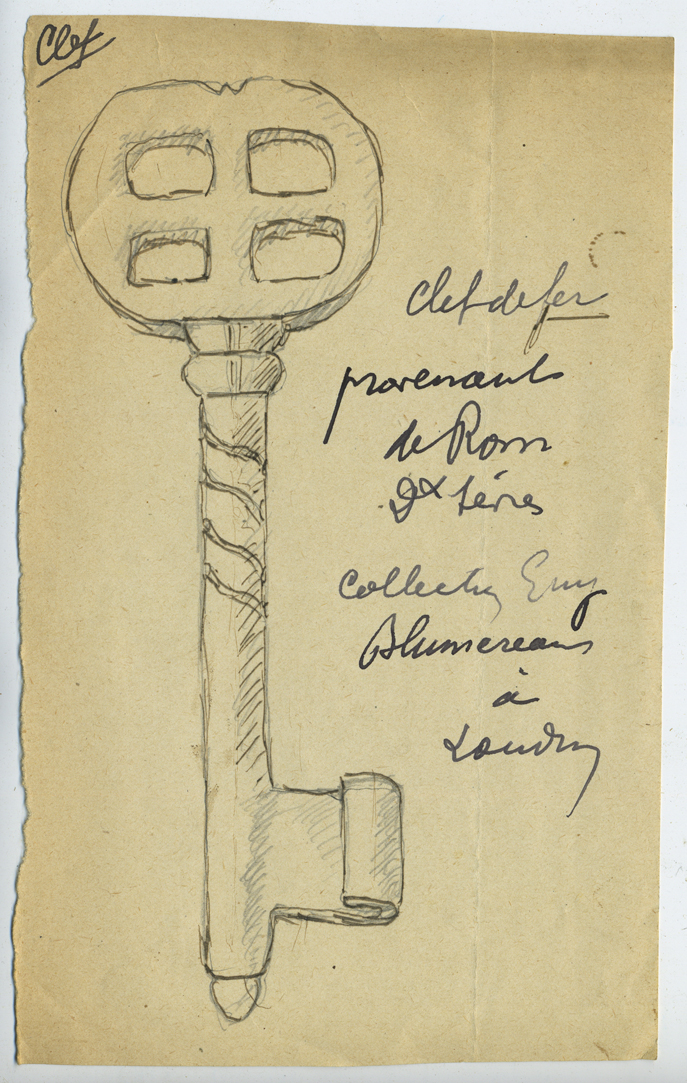 Clef
clef de fer
provenant
de Rom
Dx Sèvres
collection
Blumereau
à